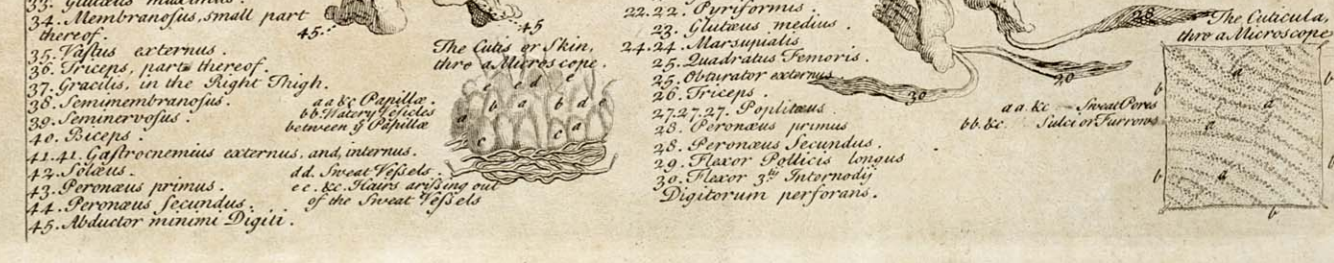 33. Glutæus maximus.
34. Membranoſus, small part
thereof.
35. Vaſtus externus.
36. Triceps, part thereof.
37. Gracilis, in the Right Thigh.
38. Semimembranoſus.
39. Seminervoſus.
40. Biceps.
41.41. Gaſtrocnemius externus, and, internus.
42. Solæus.
43. Peronæus primus.
44. Peronæus ſecundus.
45. Abductor minimi Digiti.
45.
45
The Cutis or Skin,
thro a Microscope.
a a &c Papillæ.
b b. Watery Veſicles
between ẏ Papillæ
d d. Sweat Veſsels.
e e. &c. Hairs ariſing out
of the Sweat Veſsels
e e d e
b a b d e
a
c c a
22.22. Pyriformis.
23. Glutæus medius.
24.24. Marsupialis
25. Quadratus Femoris.
25. Obturator externus
26. Triceps.
27.27.27. Poplitæus.
28. Peronæus primus
28. Peronæus Secundus.
29. Flexor Pollicis longus
30. Flexor 3tij Internodij
Digitorum perforans.
28
29
30
The Cuticula,
thro a Microscope
a a. &c Sweat Pores
bb. &c. Sulci or Furrows
a
b b
a
a
b a b
b